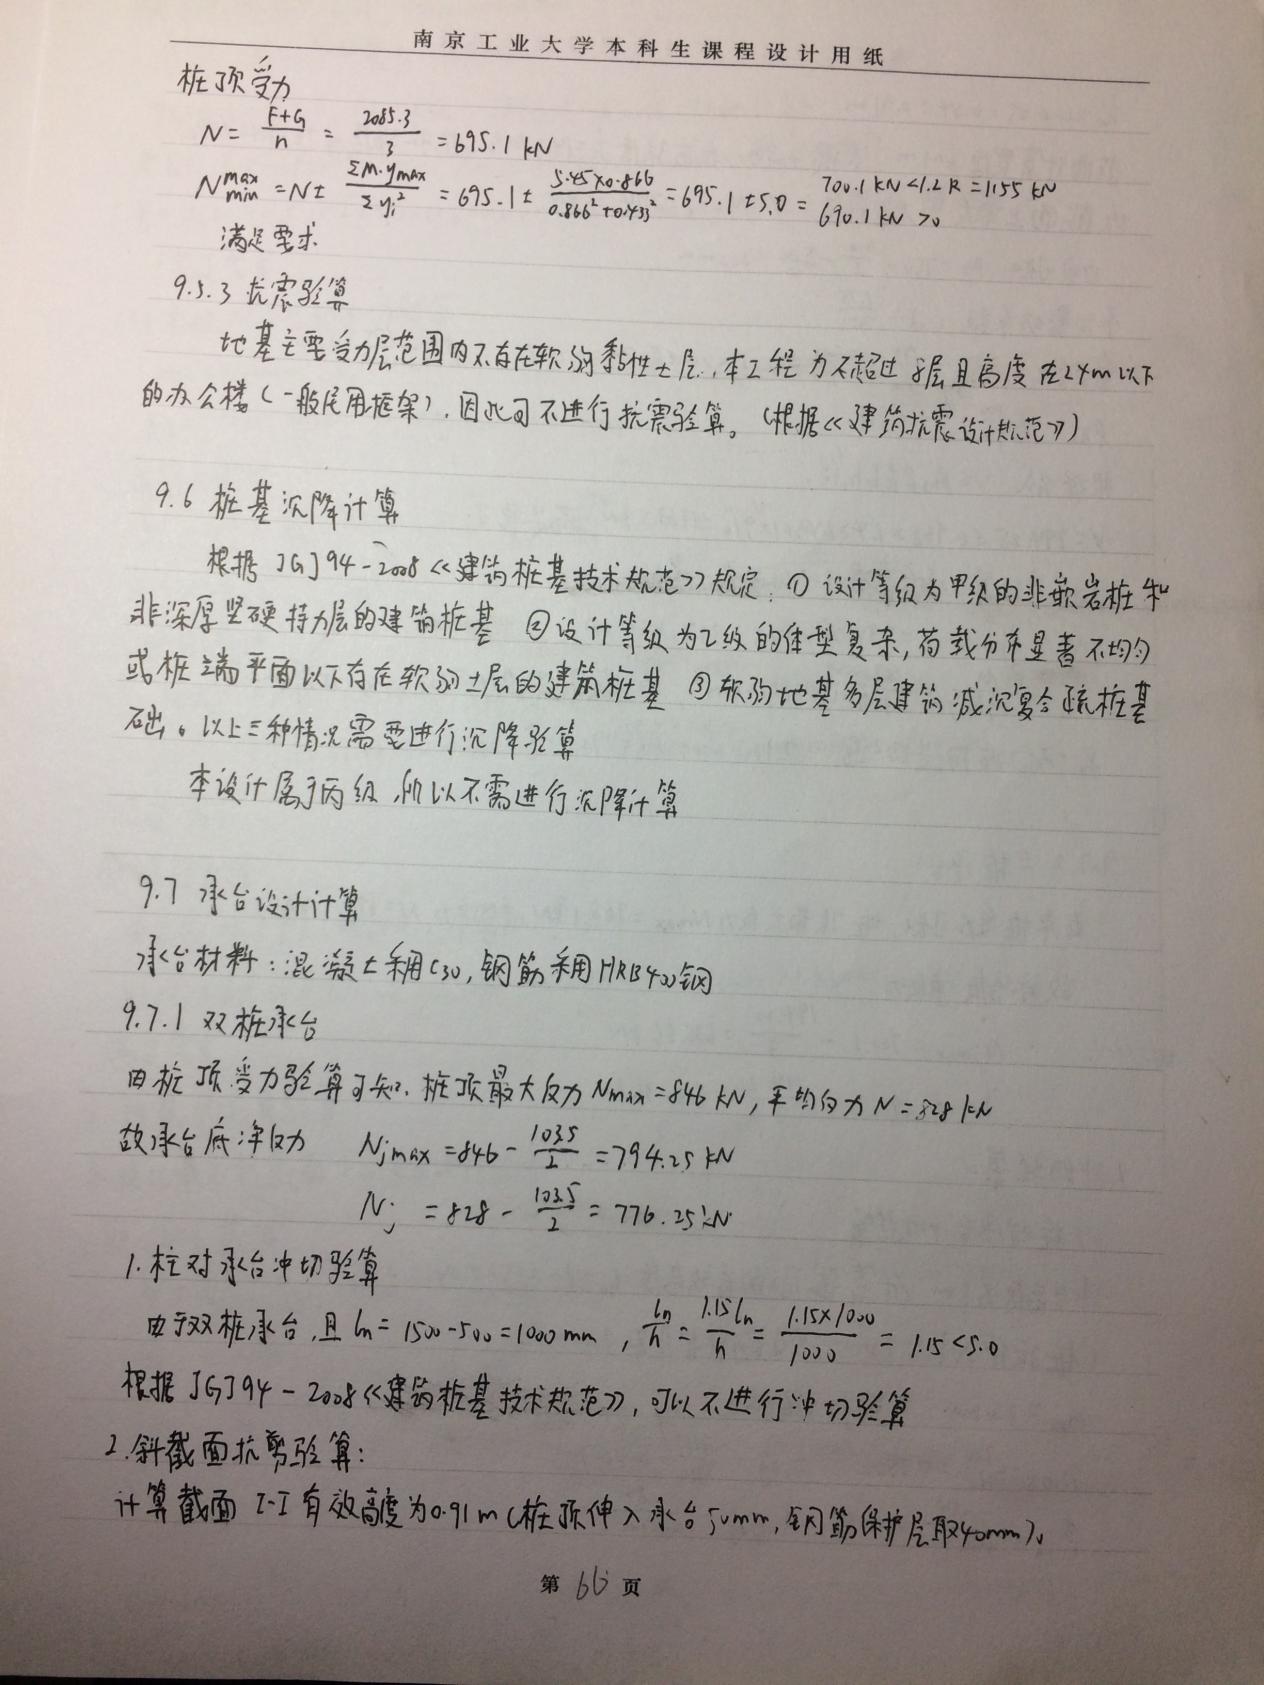 南京工业大学本科生课程设计用纸
桩顶受力
N = (F+G)/n = 2085.3/3 = 695.1 kN
N max min = N ± ΣM·ymax/Σyi² = 695.1 ± 5.45×0.866/(0.866²+0.433²) = 695.1 ± 5.0 = 700.1 kN < 1.2R = 1155 kN
690.1 kN >0
满足要求
9.5.3 抗震验算
地基主要受力层范围内不存在软弱黏性土层,本工程为不超过8层且高度在24m以下
的办公楼(一般民用框架),因此可不进行抗震验算。(根据《建筑抗震设计规范》)
9.6 桩基沉降计算
根据JGJ94-2008《建筑桩基技术规范》规定:① 设计等级为甲级的非嵌岩桩和
非深厚坚硬持力层的建筑桩基 ②设计等级为乙级的体型复杂,荷载分布显著不均匀
或桩端平面以下存在软弱土层的建筑桩基 ③软弱地基多层建筑减沉复合疏桩基
础。以上三种情况需要进行沉降验算
本设计属于丙级,所以不需进行沉降计算
9.7 承台设计计算
承台材料:混凝土利用C30,钢筋利用HRB400钢
9.7.1 双桩承台
由桩顶受力验算可知,桩顶最大反力Nmax=846 kN,平均反力N=828 kN
故承台底净反力 Njmax = 846 - 103.5/2 = 794.25 kN
Nj = 828 - 103.5/2 = 776.25 kN
1.柱对承台冲切验算
由于双桩承台,且 ln = 1500-500=1000mm , ln/h = 1.15ln/h = 1.15×1000/1000 = 1.15<5.0
根据JGJ94-2008《建筑桩基技术规范》,可以不进行冲切验算
2.斜截面抗剪验算:
计算截面 I-I 有效高度为0.91m(桩顶伸入承台50mm,钢筋保护层取40mm)。
第 66 页